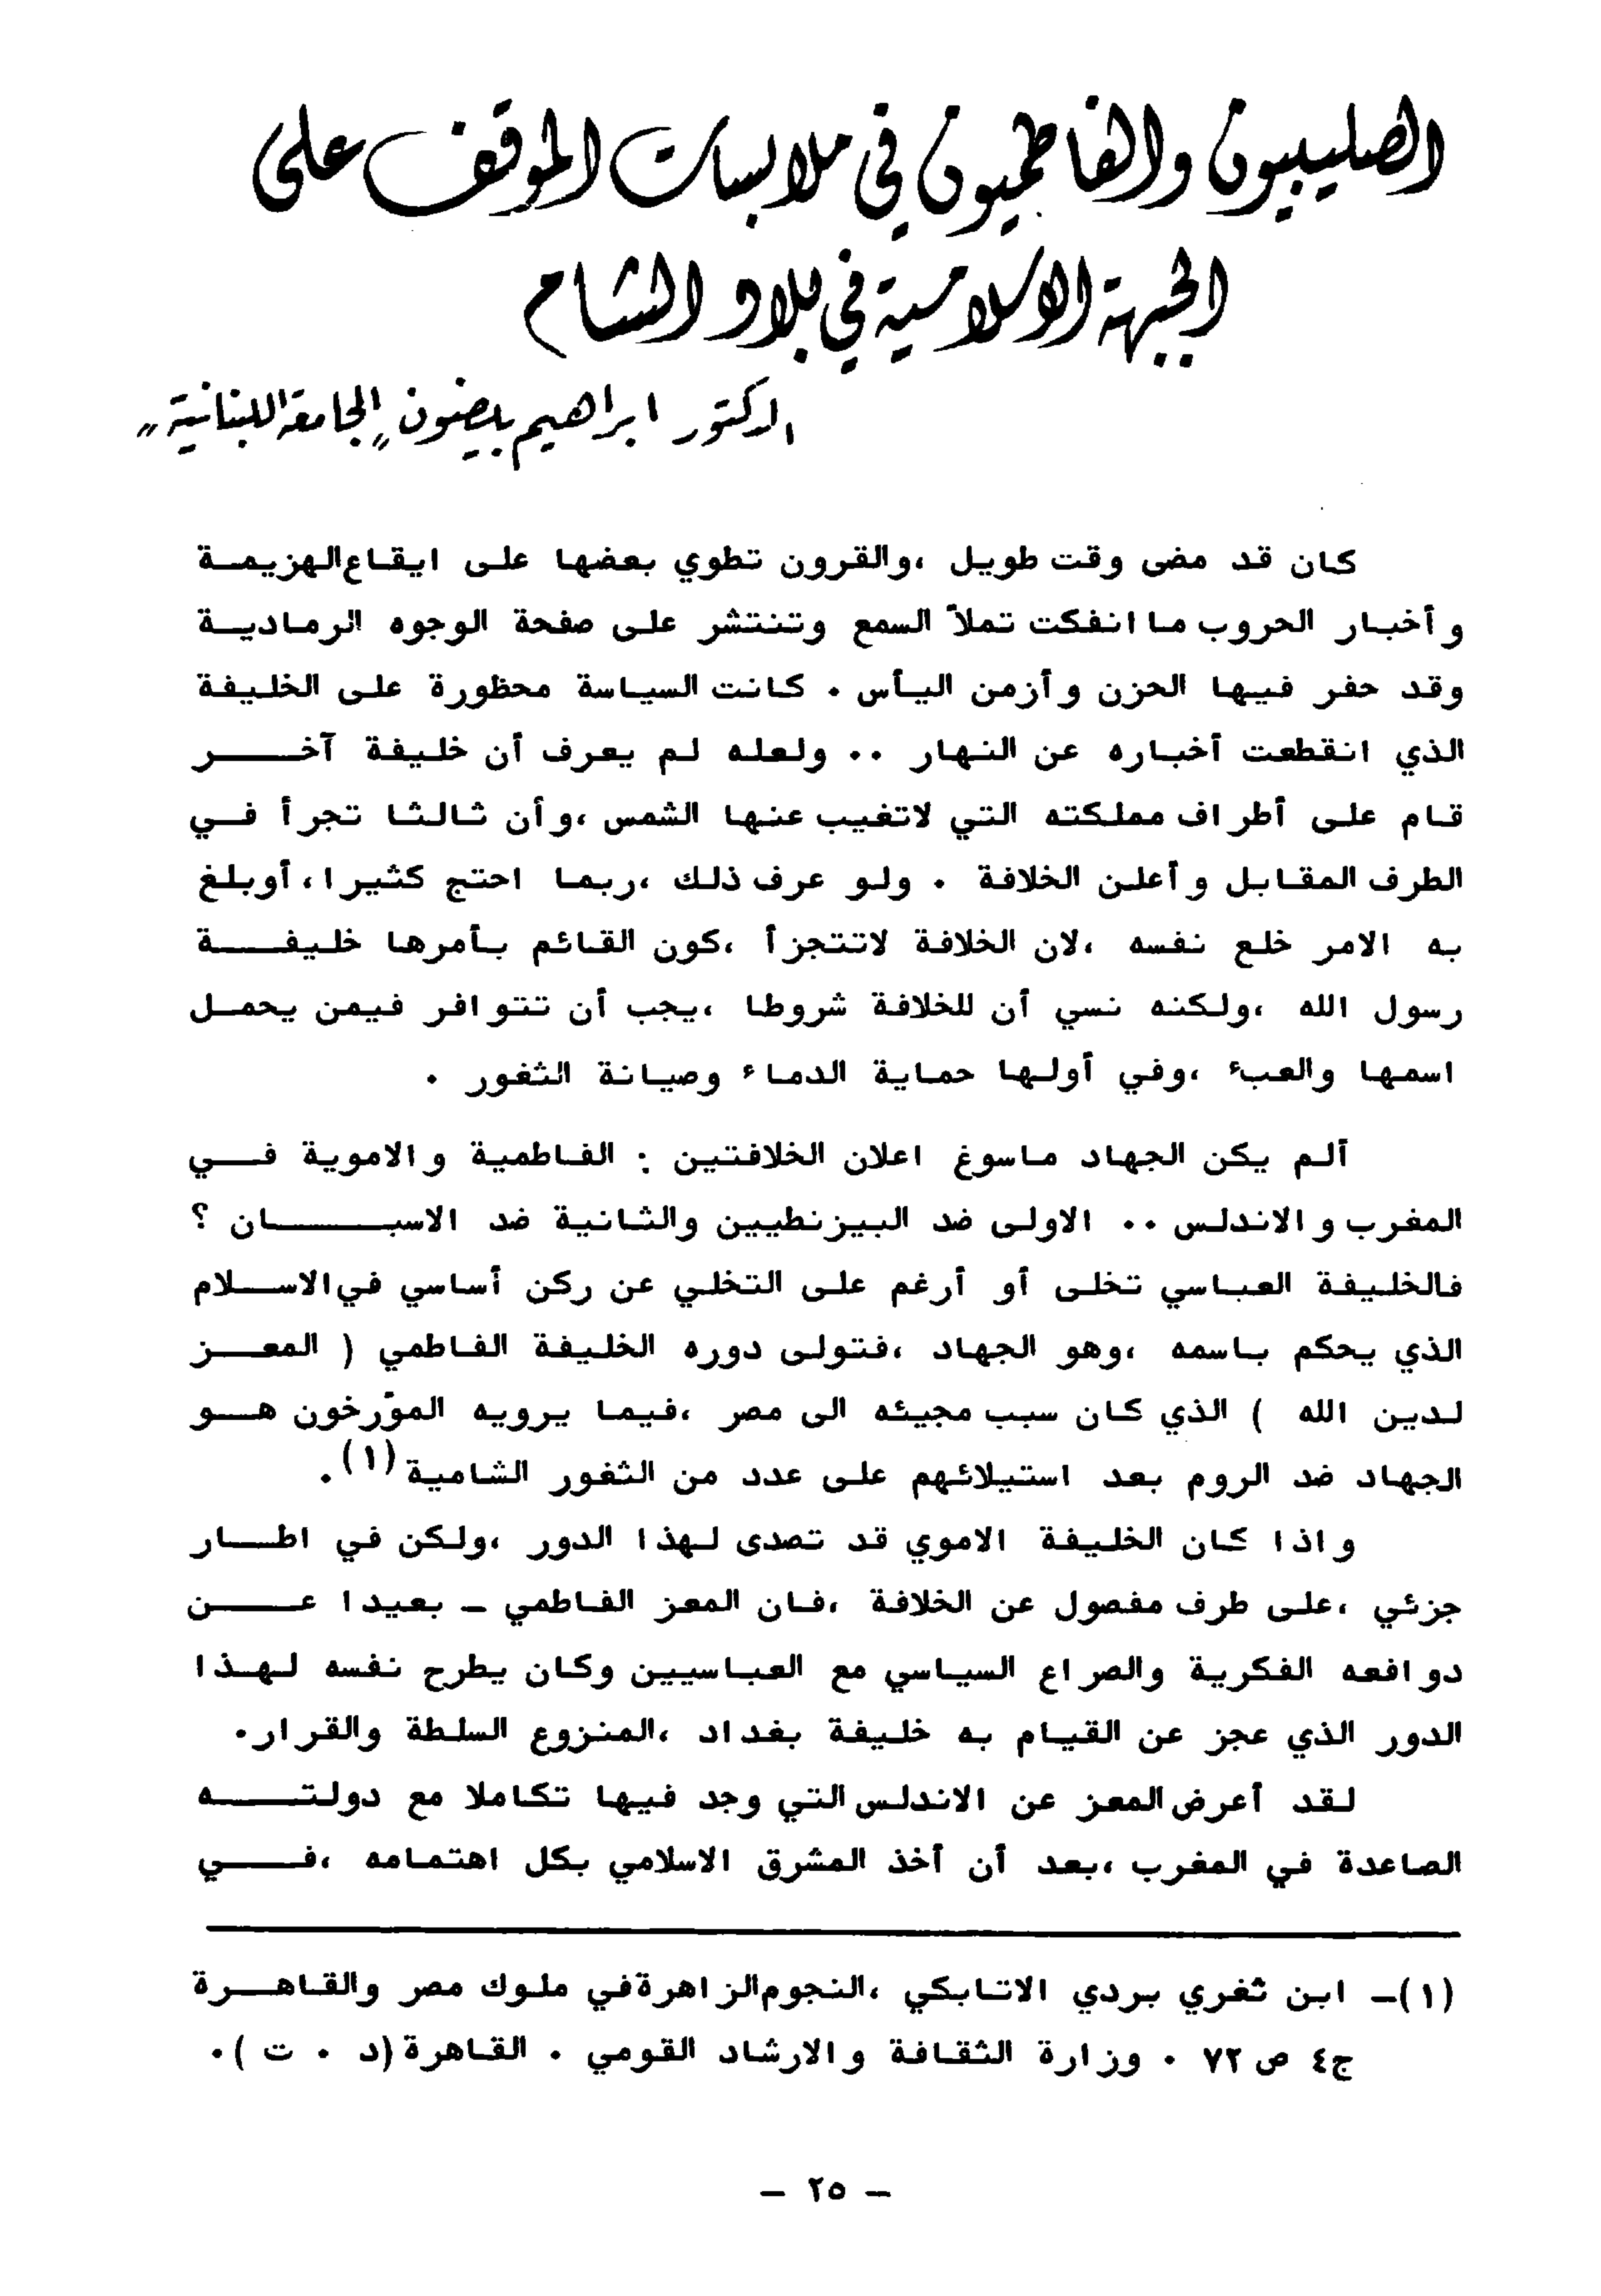 الصليبيون والفاطميون في ملابسات الموقف على
الجبهة الاسلامية في بلاد الشام
الدكتور ابراهيم بيضون "الجامعة اللبنانية"
كان قد مضى وقت طويل ،والقرون تطوي بعضها على ايقاع الهزيمة
وأخبار الحروب ما انفكت تملأ السمع وتنتشر على صفحة الوجوه الرمادية
وقد حفر فيها الحزن وأزمن اليأس . كانت السياسة محظورة على الخليفة
الذي انقطعت أخباره عن النهار .. ولعله لم يعرف أن خليفة آخر
قام على أطراف مملكته التي لاتغيب عنها الشمس ،وأن ثالثا تجرأ في
الطرف المقابل وأعلن الخلافة . ولو عرف ذلك ،ربما احتج كثيرا ،أوبلغ
به الامر خلع نفسه ،لان الخلافة لاتتجزأ ،كون القائم بأمرها خليفة
رسول الله ،ولكنه نسي أن للخلافة شروطا ،يجب أن تتوافر فيمن يحمل
اسمها والعبء ،وفي أولها حماية الدماء وصيانة الثغور .
ألم يكن الجهاد ماسوغ اعلان الخلافتين : الفاطمية والاموية في
المغرب والاندلس .. الاولى ضد البيزنطيين والثانية ضد الاسبان ؟
فالخليفة العباسي تخلى أو أرغم على التخلي عن ركن أساسي في الاسلام
الذي يحكم باسمه ،وهو الجهاد ،فتولى دوره الخليفة الفاطمي ( المعز
لدين الله ) الذي كان سبب مجيئه الى مصر ،فيما يرويه المؤرخون هو
الجهاد ضد الروم بعد استيلائهم على عدد من الثغور الشامية (١).
واذا كان الخليفة الاموي قد تصدى لهذا الدور ،ولكن في اطار
جزئي ،على طرف مفصول عن الخلافة ،فان المعز الفاطمي - بعيدا عن
دوافعه الفكرية والصراع السياسي مع العباسيين وكان يطرح نفسه لهذا
الدور الذي عجز عن القيام به خليفة بغداد ،المنزوع السلطة والقرار.
لقد أعرض المعز عن الاندلس التي وجد فيها تكاملا مع دولته
الصاعدة في المغرب ،بعد أن أخذ المشرق الاسلامي بكل اهتمامه ،في
(١)- ابن ثغري بردي الاتابكي ،النجوم الزاهرة في ملوك مصر والقاهرة
ج٤ ص ٧٢ . وزارة الثقافة والارشاد القومي . القاهرة (د . ت ).
- ٢٥ -